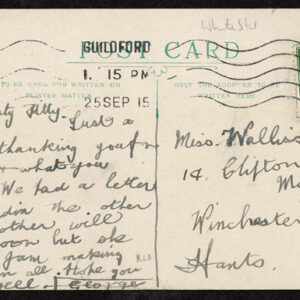 White Star
GUILDFORD
POST CARD
1. 15 PM
25 SEP 15
TO BE USED FOR WRITTEN OR
PRINTED MATTER
WRITTEN HERE
Just a
thanking you for
what you
We had a letter
the other
other will
soon but ok
Jam making
all. Hope you
well. George
Miss. Wallis
14. Clifton
Winchester
Hants.